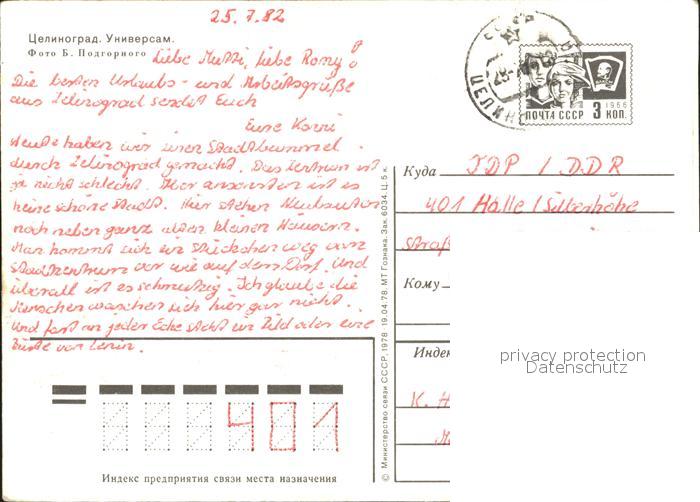 25.7.82
Целиноград. Универсам.
Фото Б. Подгорного
Liebe Mutti, liebe Romy!
Die besten Urlaubs- und Arbeitsgrüße
aus Zelinograd sendet Euch
Eure Karri
Heute haben wir einen Stadtbummel
durch Zelinograd gemacht. Das Zentrum ist
ja nicht schlecht. Aber ansonsten ist es
keine schöne Stadt. Hier stehen Neubauten
noch neben ganz alten kleinen Häusern.
Man kommt sich ein Stückchen weg vom
Stadtzentrum vor wie auf dem Dorf. Und
überall ist es schmutzig. Ich glaube die
Menschen waschen sich hier gar nicht.
Und fast an jeder Ecke steht ein Bild oder eine
Büste von Lenin.
401
Индекс предприятия связи места назначения
© Министерство связи СССР, 1978 19.04.78. МТ Гознака. Зак. 6034. Ц. 5 к.
ПОЧТА СССР 3 КОП.
1966
Куда DDR
401 Halle / Silberhöhe
Straß
Кому
Индек
K. H
privacy protection
Datenschutz